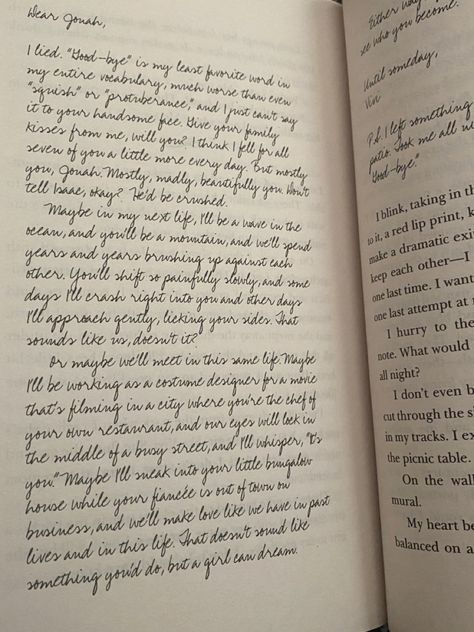 Dear Jonah,
I lied. "Good-bye" is my least favorite word in
my entire vocabulary, much worse than even
"squish" or "protuberance," and I just can't say
it to your handsome face. Give your family
kisses from me, will you? I think I fell for all
seven of you a little more every day. But mostly
you, Jonah. Mostly, madly, beautifully you. Don't
tell Isaac, okay? He'd be crushed.
Maybe in my next life, I'll be a wave in the
ocean, and you'll be a mountain, and we'll spend
years and years brushing up against each
other. You'll shift so painfully slowly, and some
days I'll crash right into you and other days
I'll approach gently, licking your sides. That
sounds like us, doesn't it?
Or maybe we'll meet in this same life. Maybe
I'll be working as a costume designer for a movie
that's filming in a city where you're the chef of
your own restaurant, and our eyes will lock in
the middle of a busy street, and I'll whisper, "It's
you." Maybe I'll sneak into your little bungalow
house while your fiancée is out of town on
business, and we'll make love like we have in past
lives and in this life. That doesn't sound like
something you'd do, but a girl can dream.
Either way
see who you become.
Until someday,
Vivi
P.S. I left something
patio. Took me all
"Good-bye."
I blink, taking in th
to it, a red lip print, k
make a dramatic exi
keep each other—I
one last time. I want
one last attempt at
I hurry to the
note. What would
all night?
I don't even b
cut through the s
in my tracks. I ex
the picnic table.
On the wal
mural.
My heart be
balanced on a